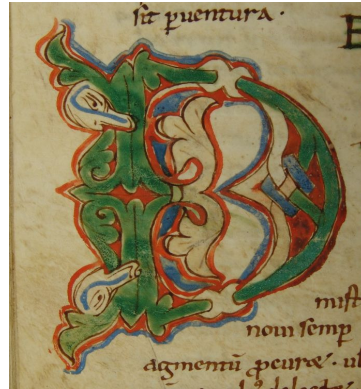 sit ꝑventura ·
E
D
mist
novi semp
agmentū ꝓcurrę · ul